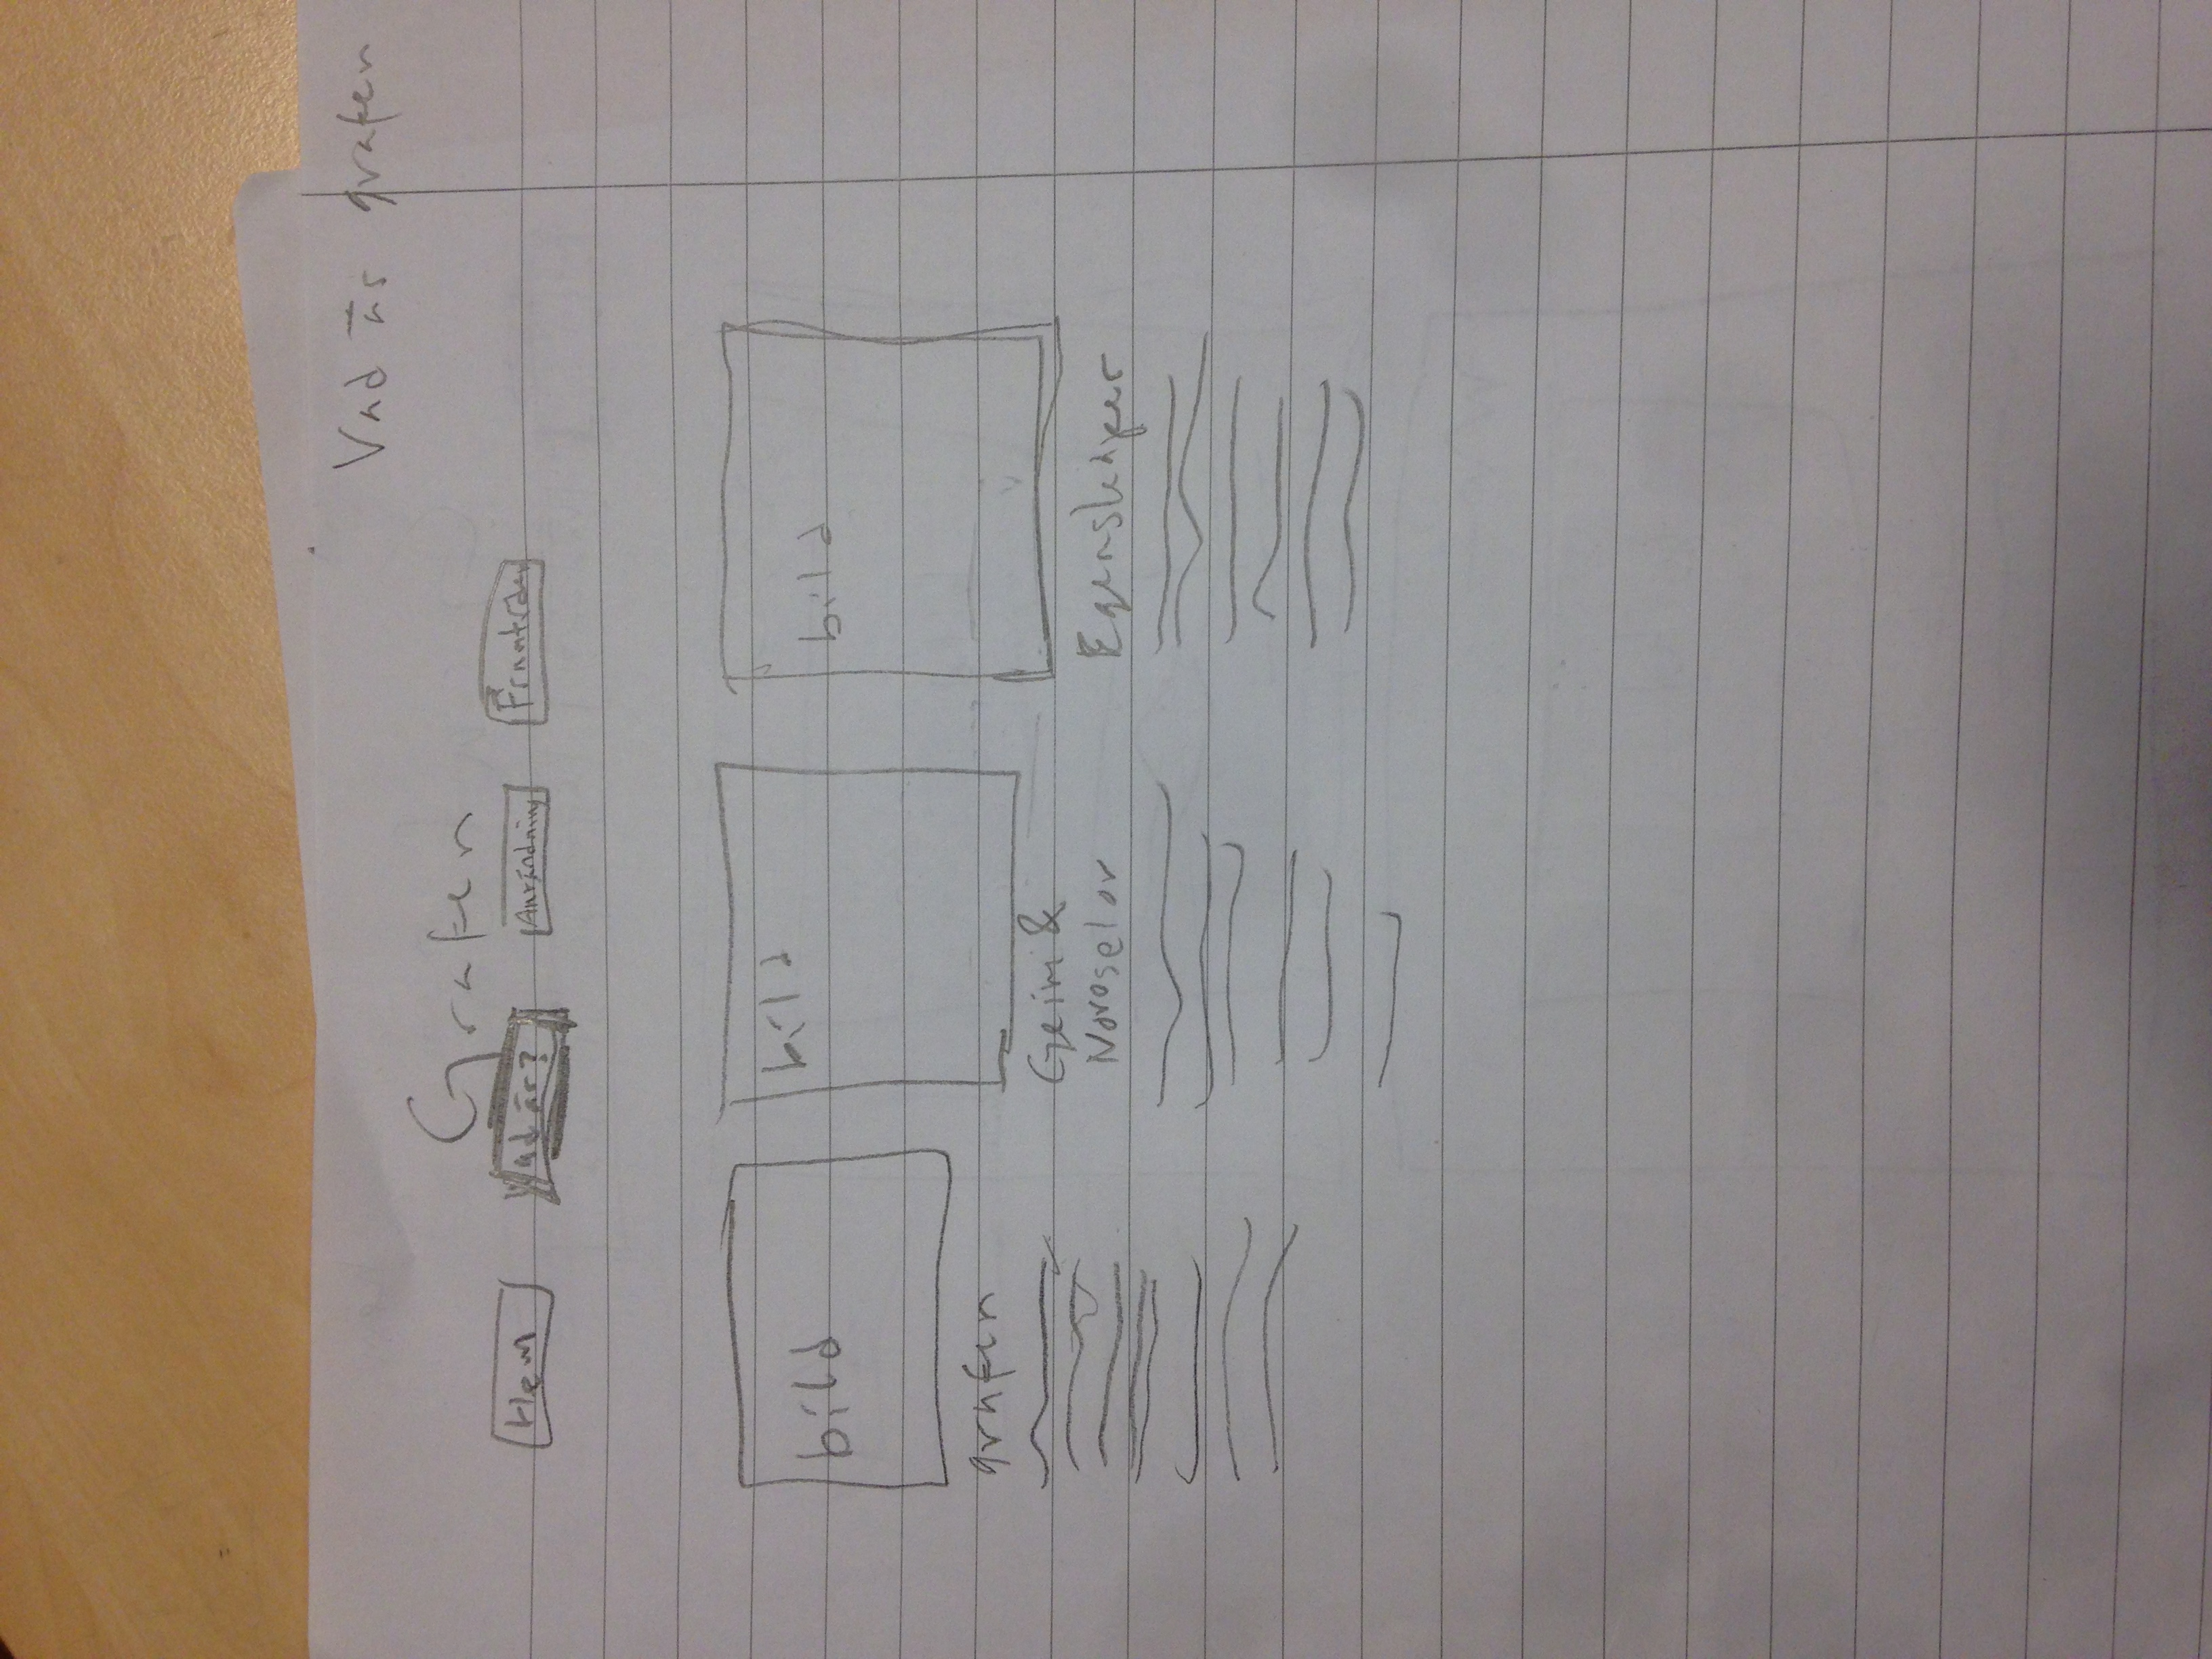 Vad är grafen
Grafen
Hem
Vad är?
Användning
Framtiden
bild
bild
bild
grafen
Geim &
Novoselov
Egenskaper